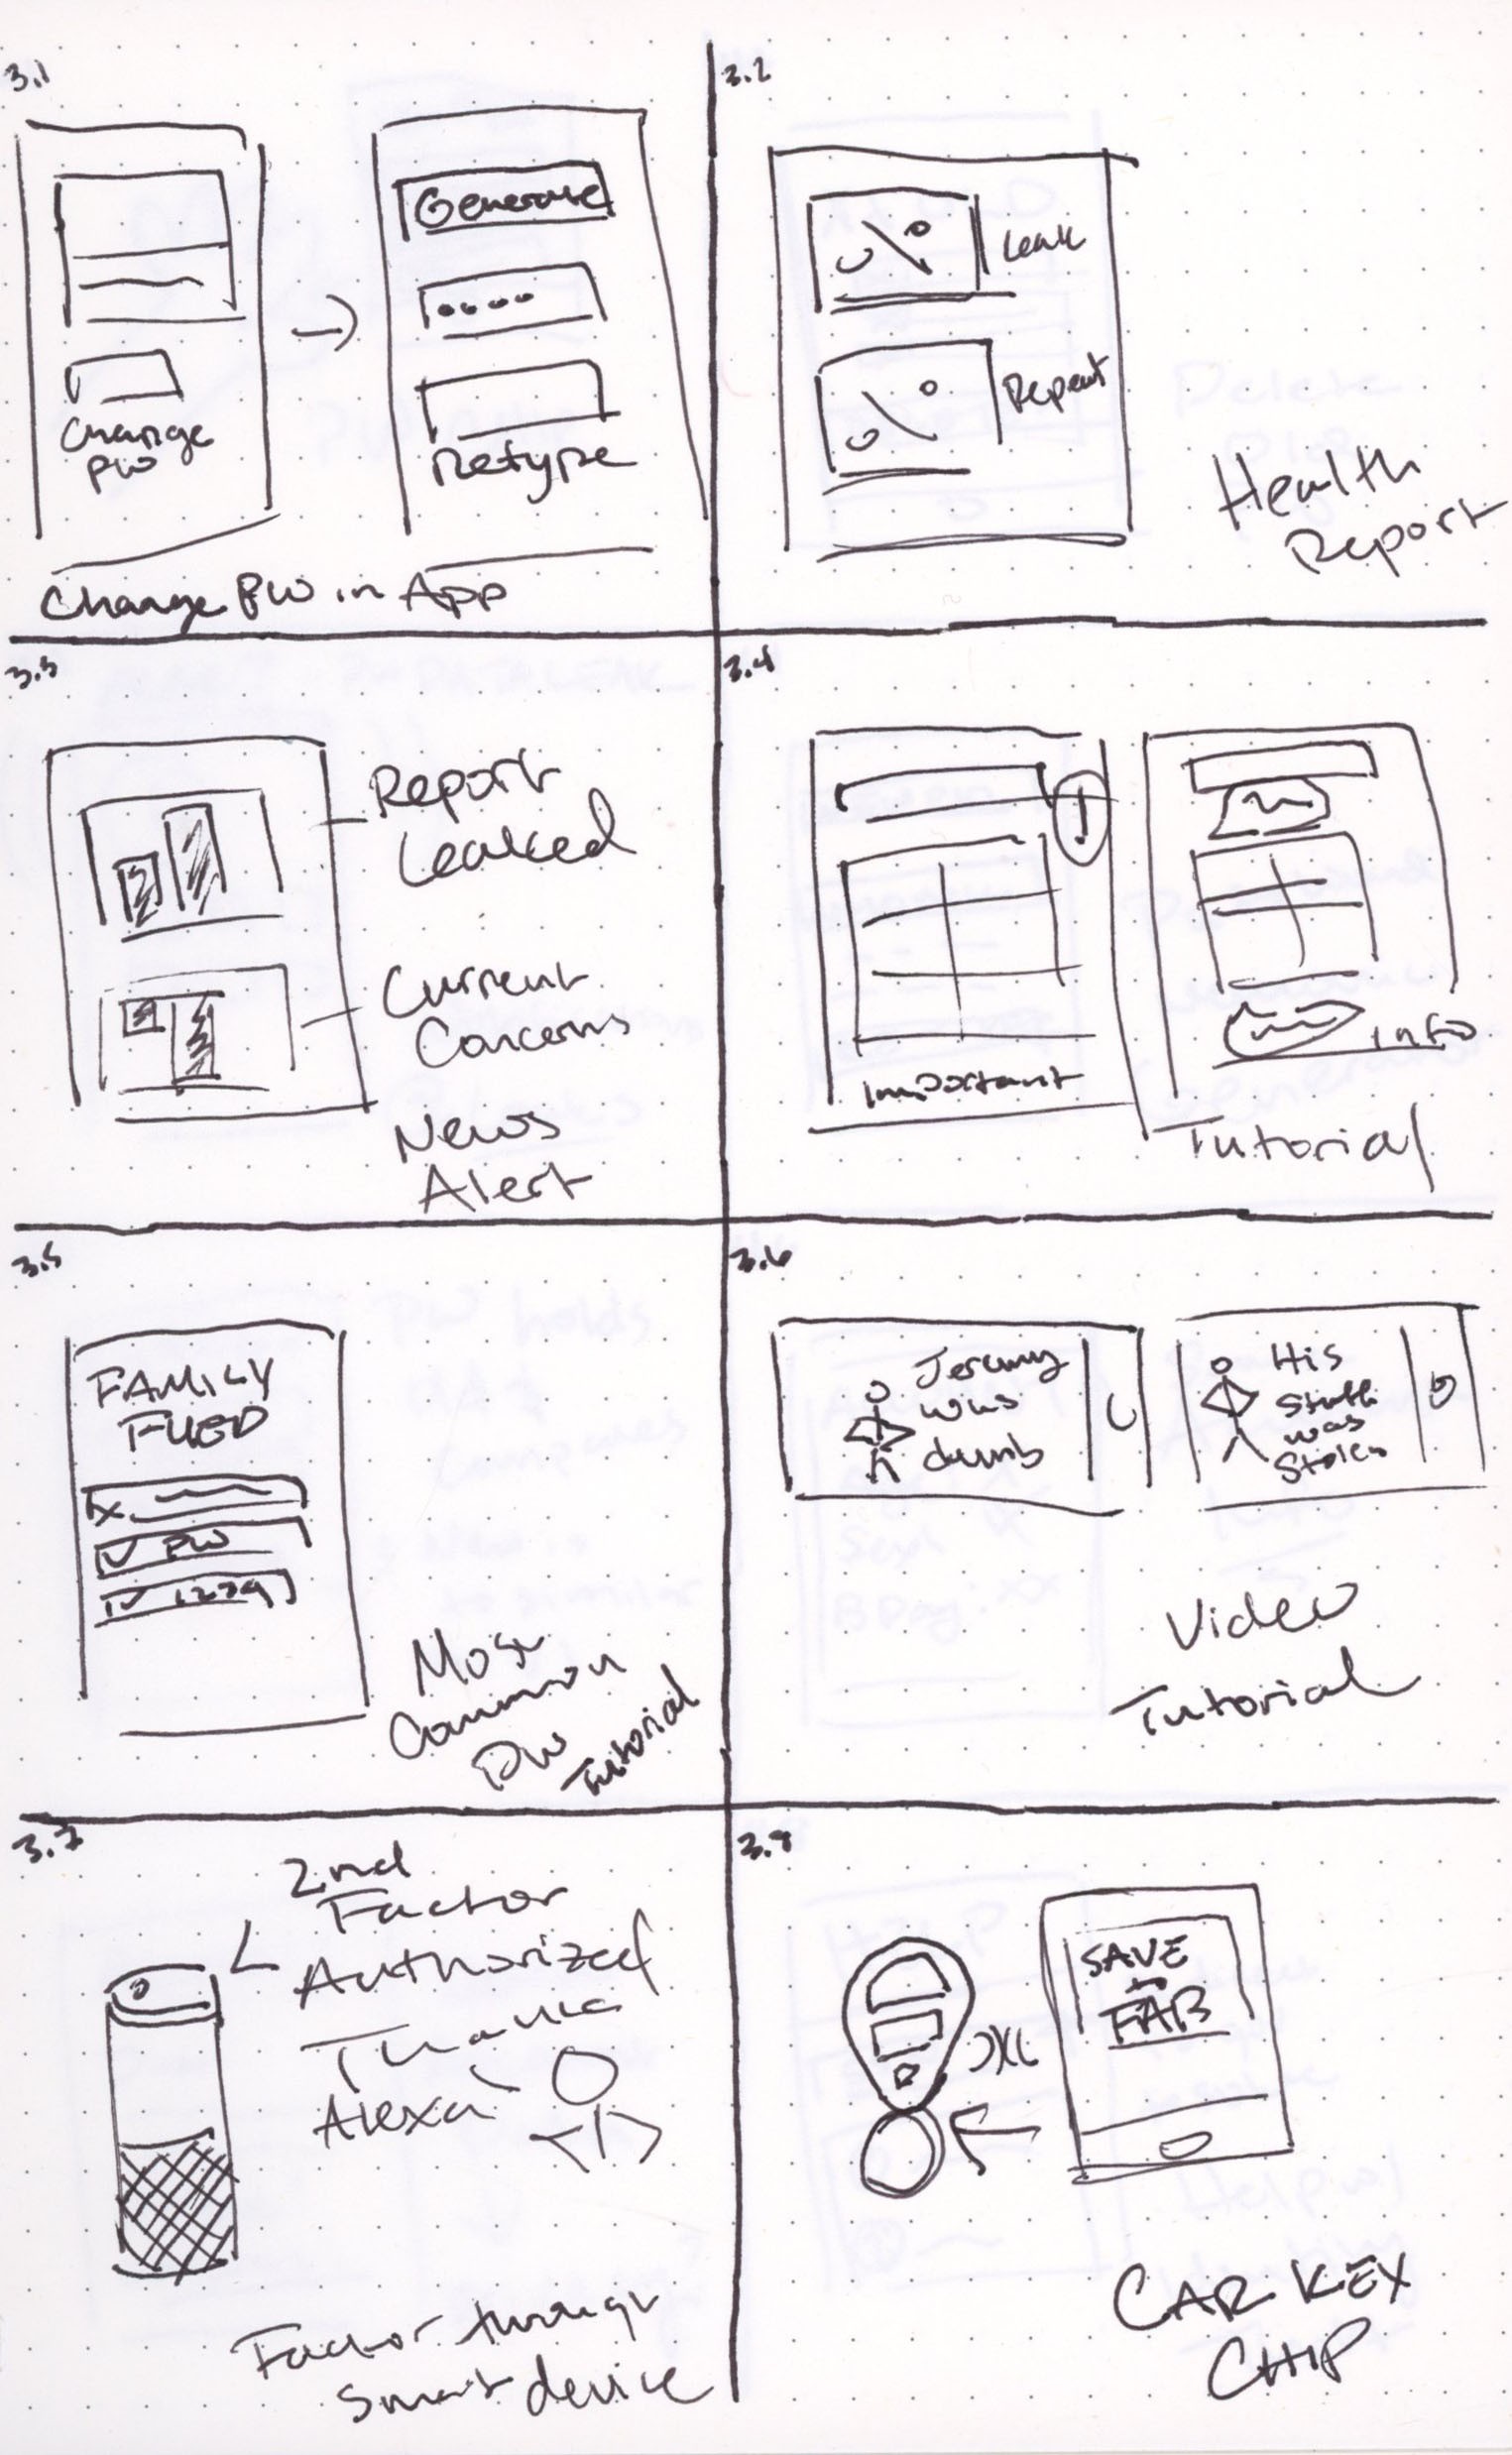 3.1
Generate
Change
PW
Retype
Change PW in App
3.2
Leak
Repeat
Health
Report
3.3
Report
Leaked
Current
Concerns
News
Alert
3.4
Important
info
Tutorial
3.5
FAMILY
FUED
X
PW
1234
Most
Common
PW
Tutorial
3.6
Jeremy
was
dumb
His
Stuff
was
Stolen
Video
Tutorial
3.7
2nd
Factor
Authorized
Thanks
Alexa
Factor through
Smart device
3.8
SAVE
to
FAB
CAR KEY
CHIP